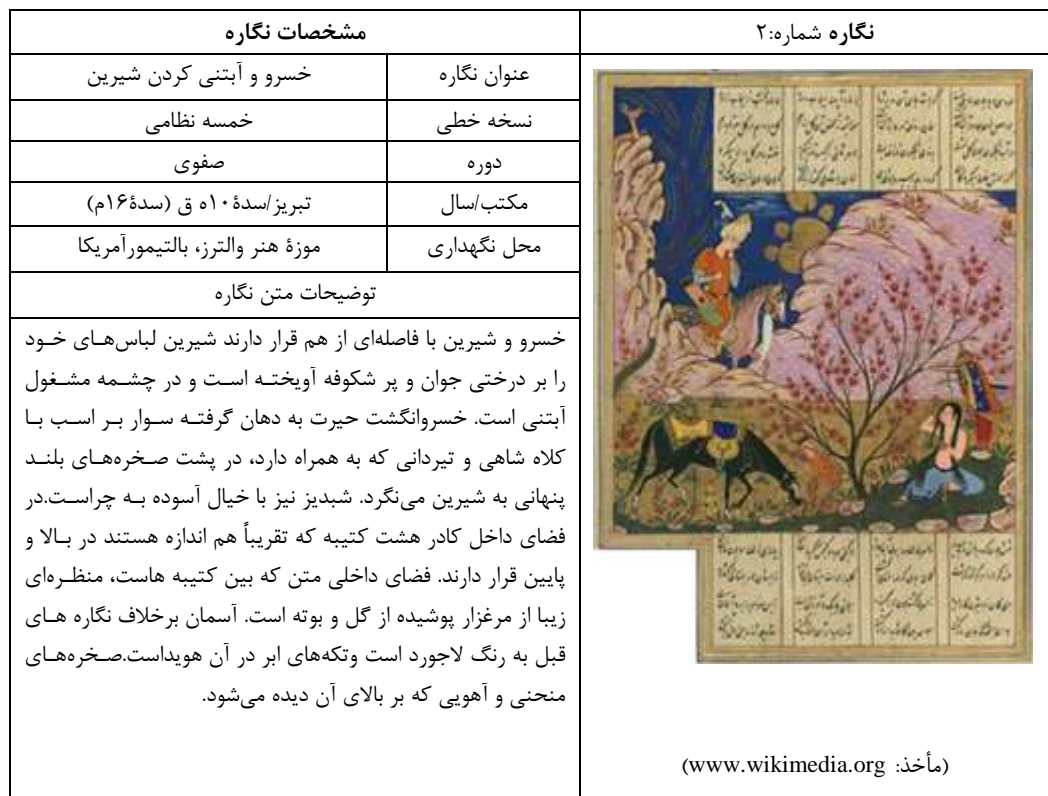 نگاره شماره:۲
مشخصات نگاره
عنوان نگاره
خسرو و آبتنی کردن شیرین
نسخه خطی
خمسه نظامی
دوره
صفوی
مکتب/سال
تبریز/سدۀ۱۰ه ق (سدۀ۱۶م)
محل نگهداری
موزۀ هنر والترز، بالتیمورآمریکا
توضیحات متن نگاره
خسرو و شیرین با فاصله‌ای از هم قرار دارند شیرین لباس‌های خود
را بر درختی جوان و پر شکوفه آویخته است و در چشمه مشغول
آبتنی است. خسروانگشت حیرت به دهان گرفته سوار بر اسب با
کلاه شاهی و تیردانی که به همراه دارد، در پشت صخره‌های بلند
پنهانی به شیرین می‌نگرد. شبدیز نیز با خیال آسوده به چراست.در
فضای داخل کادر هشت کتیبه که تقریباً هم اندازه هستند در بالا و
پایین قرار دارند. فضای داخلی متن که بین کتیبه هاست، منظره‌ای
زیبا از مرغزار پوشیده از گل و بوته است. آسمان برخلاف نگاره های
قبل به رنگ لاجورد است وتکه‌های ابر در آن هویداست.صخره‌های
منحنی و آهویی که بر بالای آن دیده می‌شود.
(مأخذ: www.wikimedia.org)